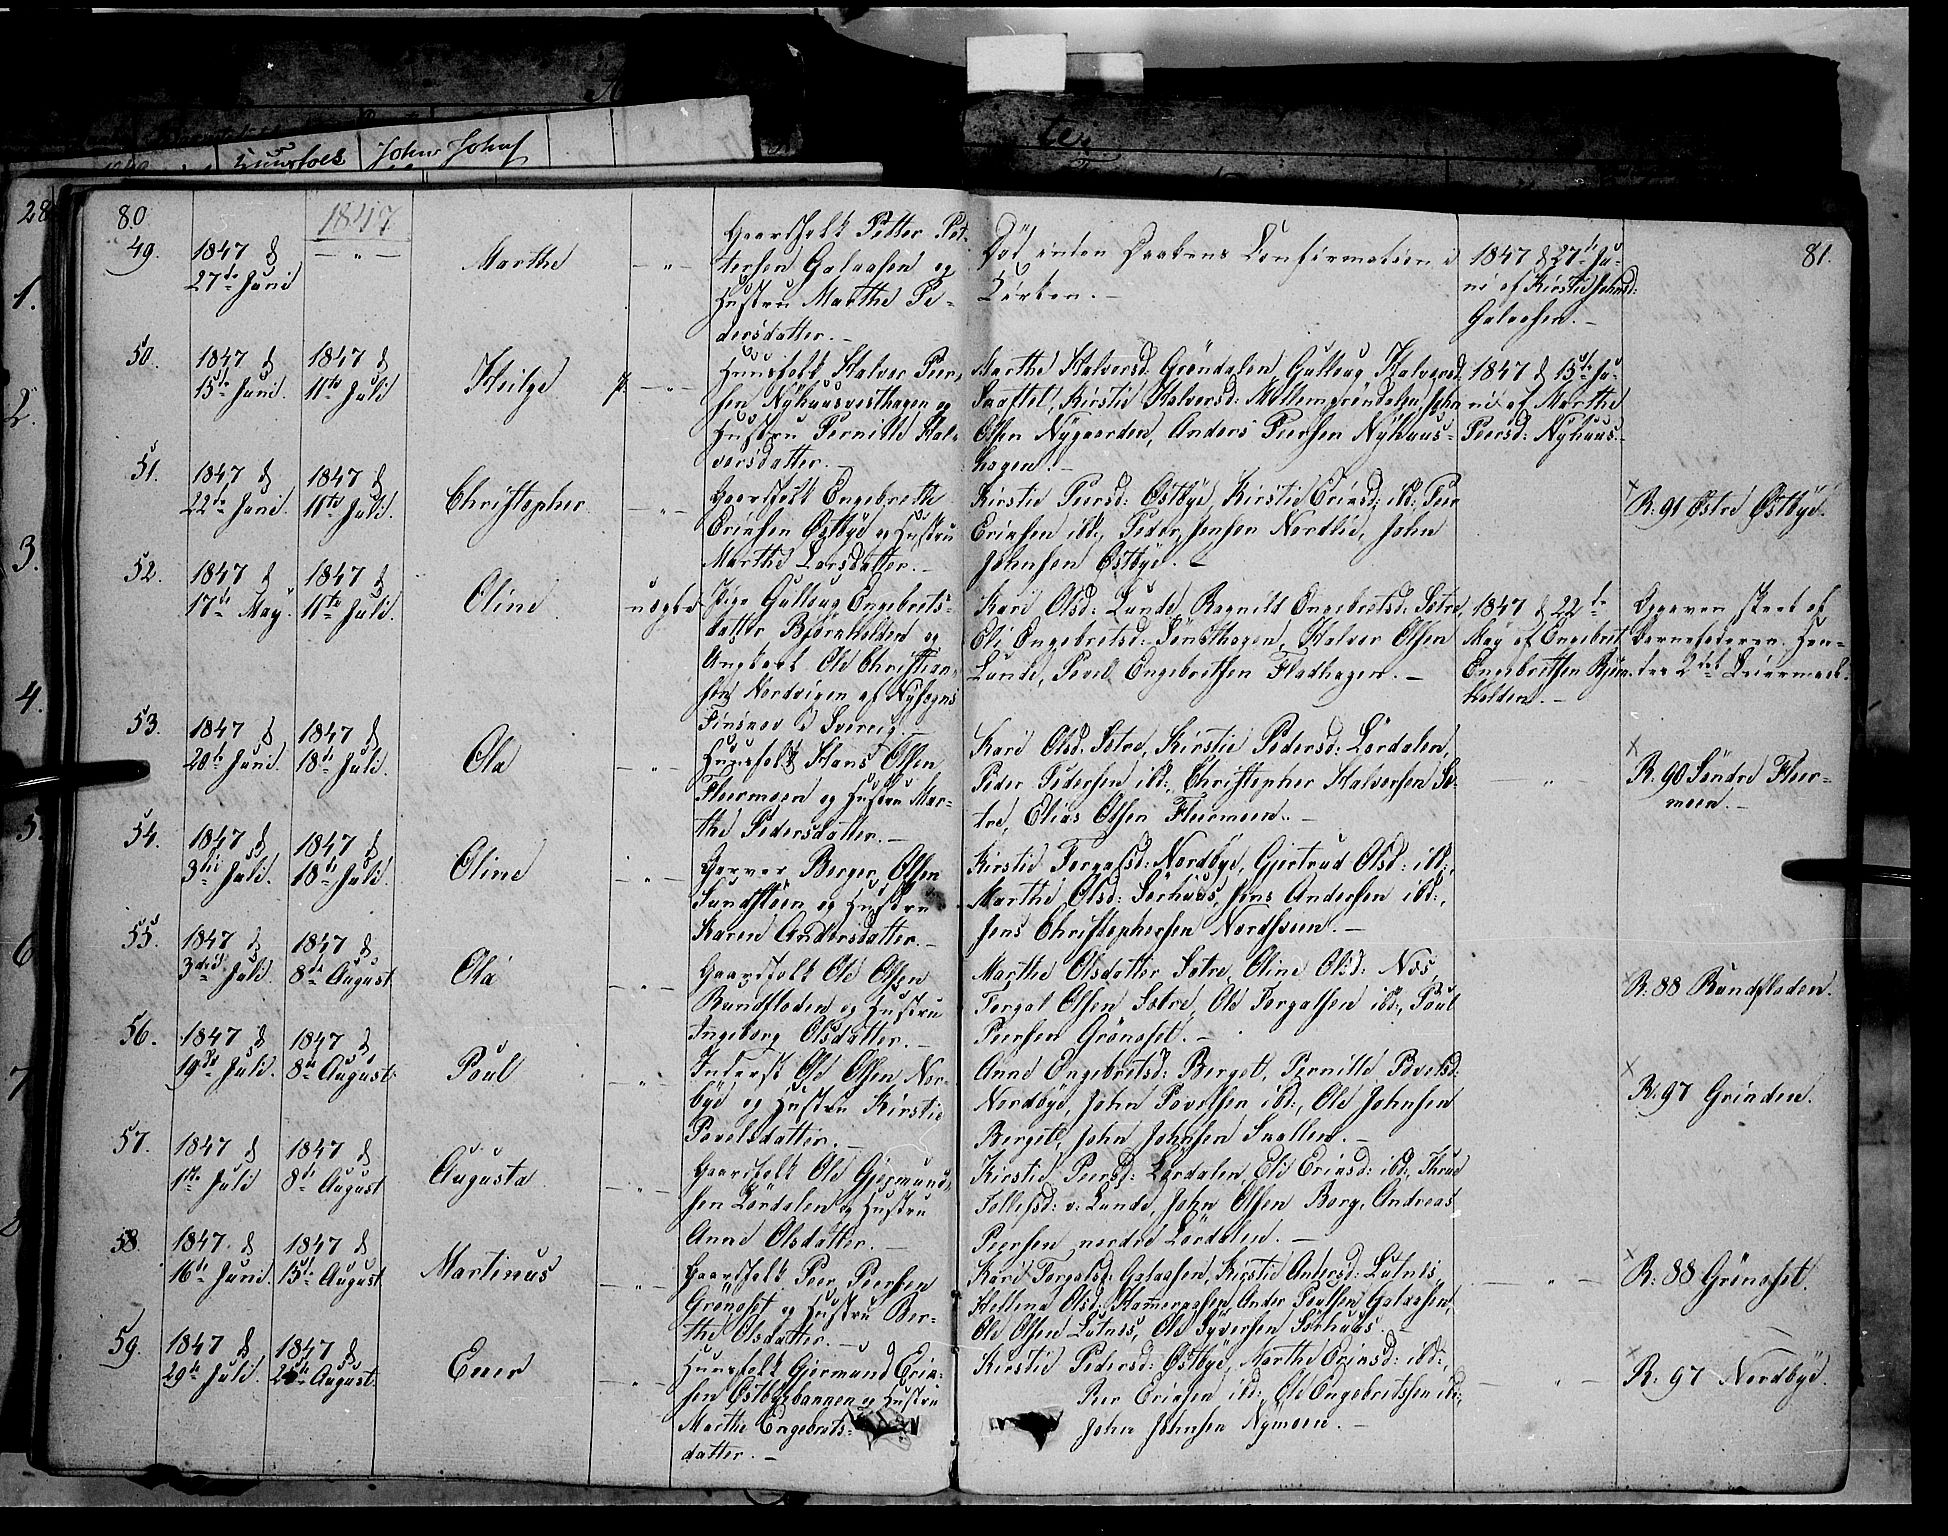 Huusfolk John Johns
28
1.
2.
3.
4.
5.
6
7
8
80.
1847
81.
49.
1847 d
27de Juni
— " —
Marthe
— " —
Gaardfolk Petter Pet-
tersen Galaasen og
Hustru Marthe Pe-
dersdatter. —
Död inden Daabens Confirmation i
Kirken. —
1847 d 27de Ju-
ni af Kirstie Johnsd:
Galaasen. —
50.
1847 d
15de Juni.
1847 d
11te Juli
Helge
— " —
Huusfolk Halvor Peer-
sen Nyhuusvesthagen og
Hustru Pernille Hal-
vorsdatter. —
Marthe Halvorsd. Gröndalen, Gulloug Halvorsd.
Kirstie Halvorsd: Mellemgröndalen, John
Olsen Nygaarden, Anders Peersen Nyhuus-
hagen. —
1847 d 15de Ju-
ni af Marthe
Peersd: Nyhuus-
51.
1847 d
22de Juni.
1847 d
11te Juli.
Christopher
— " —
Gaardfolk Engebreth
Ericksen Östbye og Hustru
Marthe Larsdatter. —
Kirstie Peersd: Östbye, Kirstie Ericksd: ibd:, Peer
Ericksen ibd:, Peder Jensen Nordlie, John
Johnsen Östbye. —
R: 91 Östre Östbye.
52.
1847 d
17de May.
1847 d
11te Juli.
Oline
uægte
Pige Gulloug Engebrets-
datter Björnholden og
Ungkarl Ole Christian-
sen Nordvigen af Nysogns
Finskov i Sverrig. —
Kari Olsd: Lunde, Ragnild Engebretsd: Sætre,
Eli Engebretsd: Sundthagen, Halvor Olsen
Lunde, Povel Engebrethsen Fladhagen. —
1847 d 22de
May af Engebret
Engebrethsen Björn-
holden. —
Opgaven skeet af
Barnefaderen. Hen-
des 2det Leiermaal.
53.
1847 d
20de Juni.
1847 d
18de Juli.
Ola
— " —
Huusfolk Hans Olsen
Fleermoen og Hustru Mar-
the Pedersdatter. —
Kari Olsd. Sætre, Kirstie Pedersd: Lördalen,
Peder Pedersen ibd:, Christopher Halvorsen Sæ-
tre, Elias Olsen Fleermoen. —
"
R. 90 Söndre Fleer-
moen. —
54.
1847 d
3die Juli.
1847 d
18de Juli.
Oline
— " —
Garver Berger Olsen
Sundstöen og Hustru
Karen Andersdatter. —
Kirstie Torgalsd: Nordbye, Gjertrud Olsd: ibd:,
Marthe Olsd: Sörhuus, Jens Andersen ibd:,
Jens Christophersen Nordsveen. —
55.
1847 d
3die Juli.
1847 d
8de August
Ola
— " —
Gaardfolk Ole Olsen
Rundfloden og Hustru
Ingeborg Olsdatter. —
Marthe Olsdatter Sætre, Oline Olsd: Næs,
Torgal Olsen Sætre, Ole Torgalsen ibd:, Poul
Peersen Grönoset. —
R: 88 Rundfloden.
56.
1847 d
19de Juli.
1847 d
8de August.
Poul
— " —
Inderst Ole Olsen Nor-
bye og Hustru Kirstie
Povelsdatter. —
Anne Engebretsd: Berget, Pernille Povelsd:
Nordbye, John Povelsen ibd:, Ole Johnsen
Berget, John Johnsen Snollen. —
R: 97 Grinden.
57.
1847 d
1ste Juli
1847 d
8de August
Augusta
— " —
Gaardfolk Ole Gjermund-
sen Lördalen og Hustru
Anne Olsdatter. —
Kirstie Peersd: Lördalen, Eli Ericksd: ibd:,
Tollefsd: v: Lunde, John Olsen Borg, Andreas
Peersen nordre Lördalen. —
58.
1847. d
16de Juni.
1847 d
15de August
Martinus
— " —
Gaardfolk Peer Peersen
Grönoset og Hustru Ber-
the Olsdatter. —
Kari Torgalsd: Galaasen, Kirstie Andersd: Lutnes,
Hellena Olsd: Hammeraasen, Ander Poulsen Galaasen,
Ole Olsen Lutnes, Ole Syversen Sörhuus. —
— " —
R: 88 Grönoset.
59.
1847 d
29de Juli.
1847 d
August.
Ener
— " —
Huusfolk Gjermund Erick-
sen Östbyebannen og Hustru
Marthe Engebrets-
datter. —
Kirstie Pedersd: Östbye, Marthe Ericksd: ibd:,
Peer Ericksen ibd:, Ole Engebretsen ibd:,
John Johnsen Nymoen. —
— " —
R. 97 Nordbye.